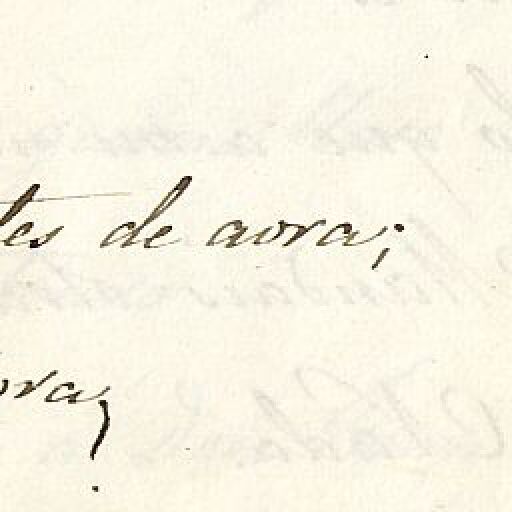 tes de aora;
ora,